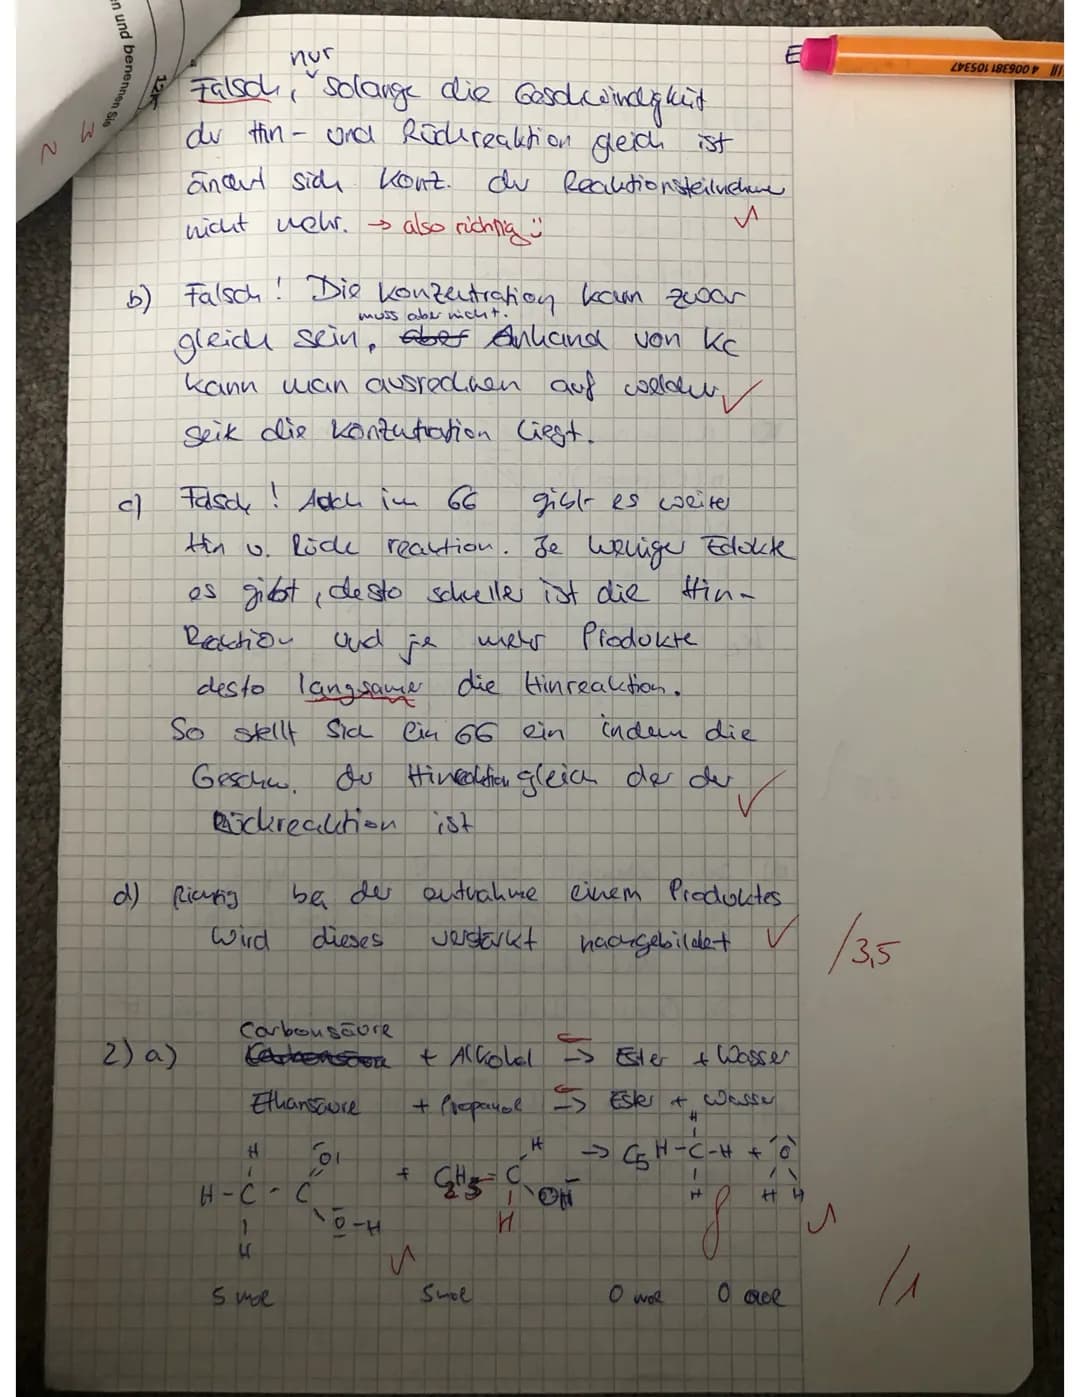 en und benennen Sie
4 006381 105347
E
nur
Falsch, solange die Geschwindigkeit
der Hin- und Rückreaktion gleich ist
änert sich Konz. der Reaktionsteilnehmer
nicht mehr. → also richtig :)
b) Falsch! Die Konzentration kann zwar
muss aber nicht.
gleich sein, aber Anhand von Kc
kann man ausrechnen auf welcher
Seite die Konzentration liegt.
c) Falsch! Auch im GG gibt es weiter
Hin u. Rück reaktion. Je weniger Edukte
es gibt, desto schneller ist die Hin-
Reaktion und je mehr Produkte
desto langsamer die Hinreaktion.
So stellt sich ein GG ein indem die
Geschw. der Hinreaktion gleich der der
Rückreaktion ist
d) Richtig bei der entnahme einem Produktes
wird dieses verstärkt nachgebildet
/3,5
Carbonsäure
2) a) + Alkohol ⇌ Ester + Wasser
Ethansäure + Propanol ⇌ Ester + Wasser
H H H
H - C - C O - H + C2H5 - C OH → C5 H-C-H + O
H H H H H
5 mol 5 mol 0 mol 0 mol
/1